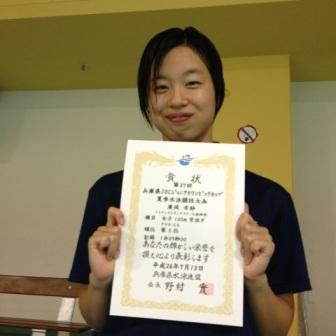 賞状
第37回
兵庫県JOCジュニアオリンピックカップ
夏季水泳競技大会
種目 女子 100m 背泳ぎ
順位 第3位
記録 1分09秒00
あなたの輝かしい栄誉を
讃えこれにより表彰します
平成26年7月13日
兵庫県水泳連盟
会長 野村